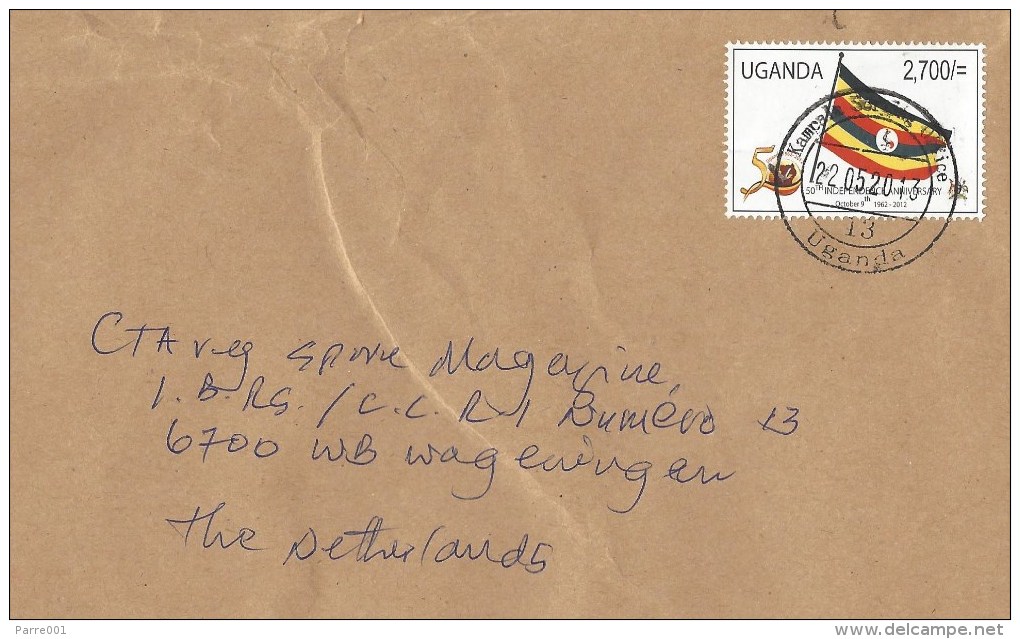 UGANDA 2,700/=
50
50TH INDEPENDENCE ANNIVERSARY
October 9th 1962 - 2012
Kampala
22.05.2013
13
Uganda
CTA reg Spore Magazine,
I.B.RS. / C.C.R.I Numéro 13
6700 WB Wageningen
The Netherlands
Parre001
www.delcampe.net